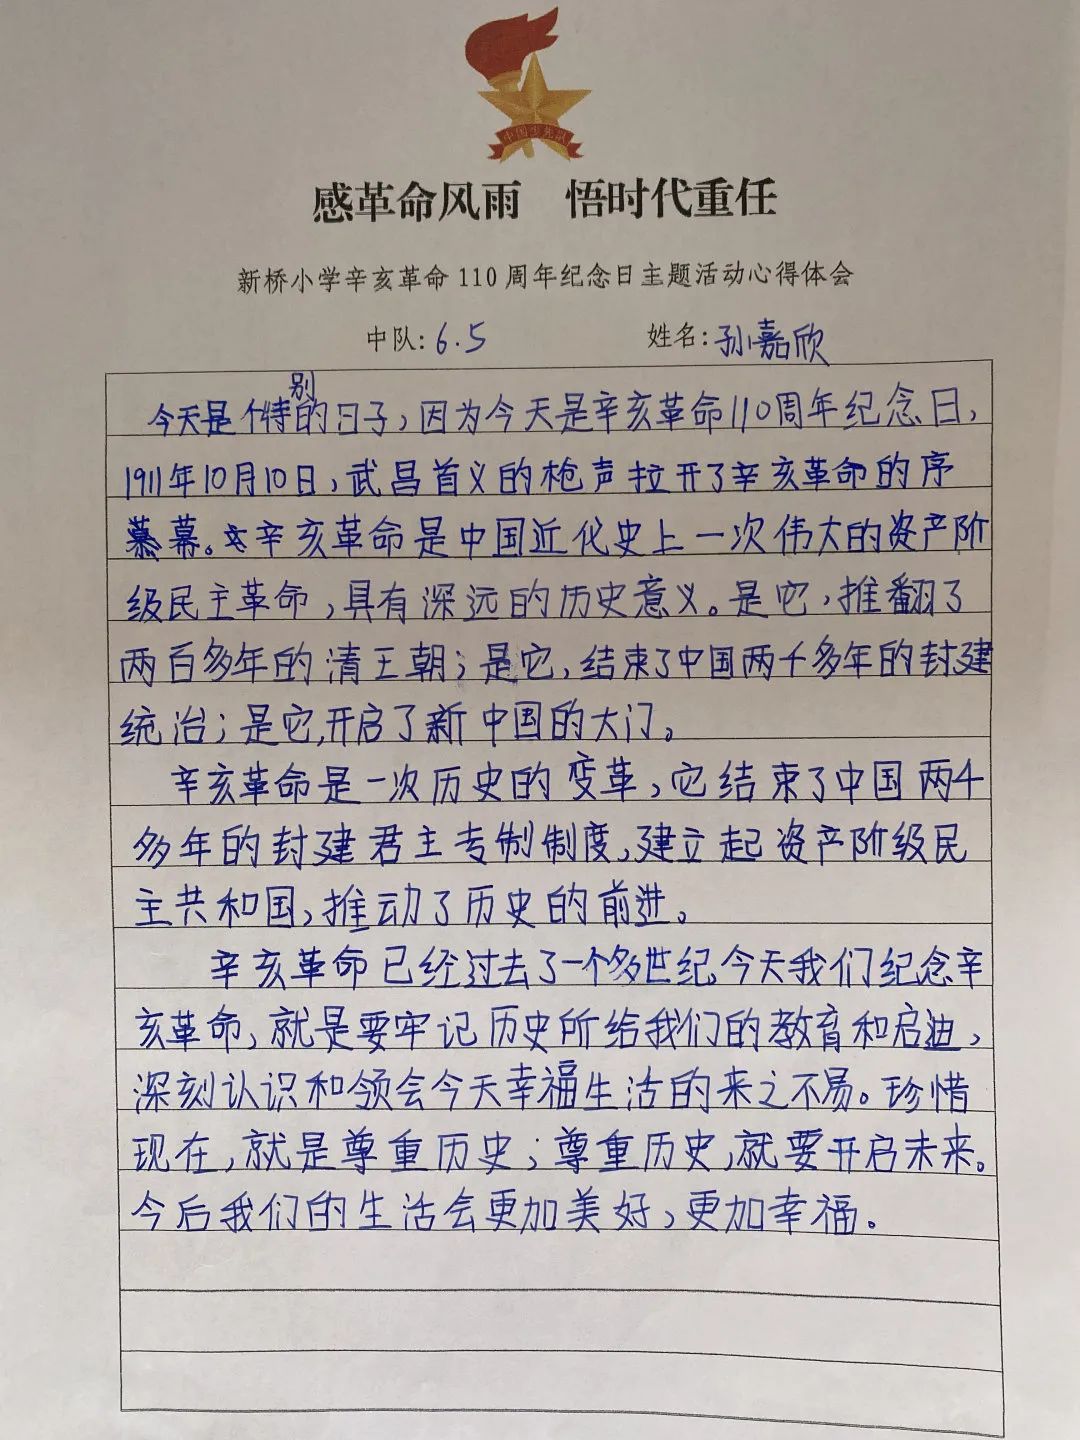 中国少先队
感革命风雨 悟时代重任
新桥小学辛亥革命110周年纪念日主题活动心得体会
中队:6.5 姓名:孙嘉欣
今天是个特别的日子,因为今天是辛亥革命110周年纪念日,
1911年10月10日,武昌首义的枪声拉开了辛亥革命的序
幕。辛亥革命是中国近代史上一次伟大的资产阶
级民主革命,具有深远的历史意义。是它,推翻了
两百多年的清王朝;是它,结束了中国两千多年的封建
统治;是它,开启了新中国的大门。
辛亥革命是一次历史的变革,它结束了中国两千
多年的封建君主专制制度,建立起资产阶级民
主共和国,推动了历史的前进。
辛亥革命已经过去了一个多世纪,今天我们纪念辛
亥革命,就是要牢记历史所给我们的教育和启迪,
深刻认识和领会今天幸福生活的来之不易。珍惜
现在,就是尊重历史;尊重历史,就要开启未来。
今后我们的生活会更加美好,更加幸福。